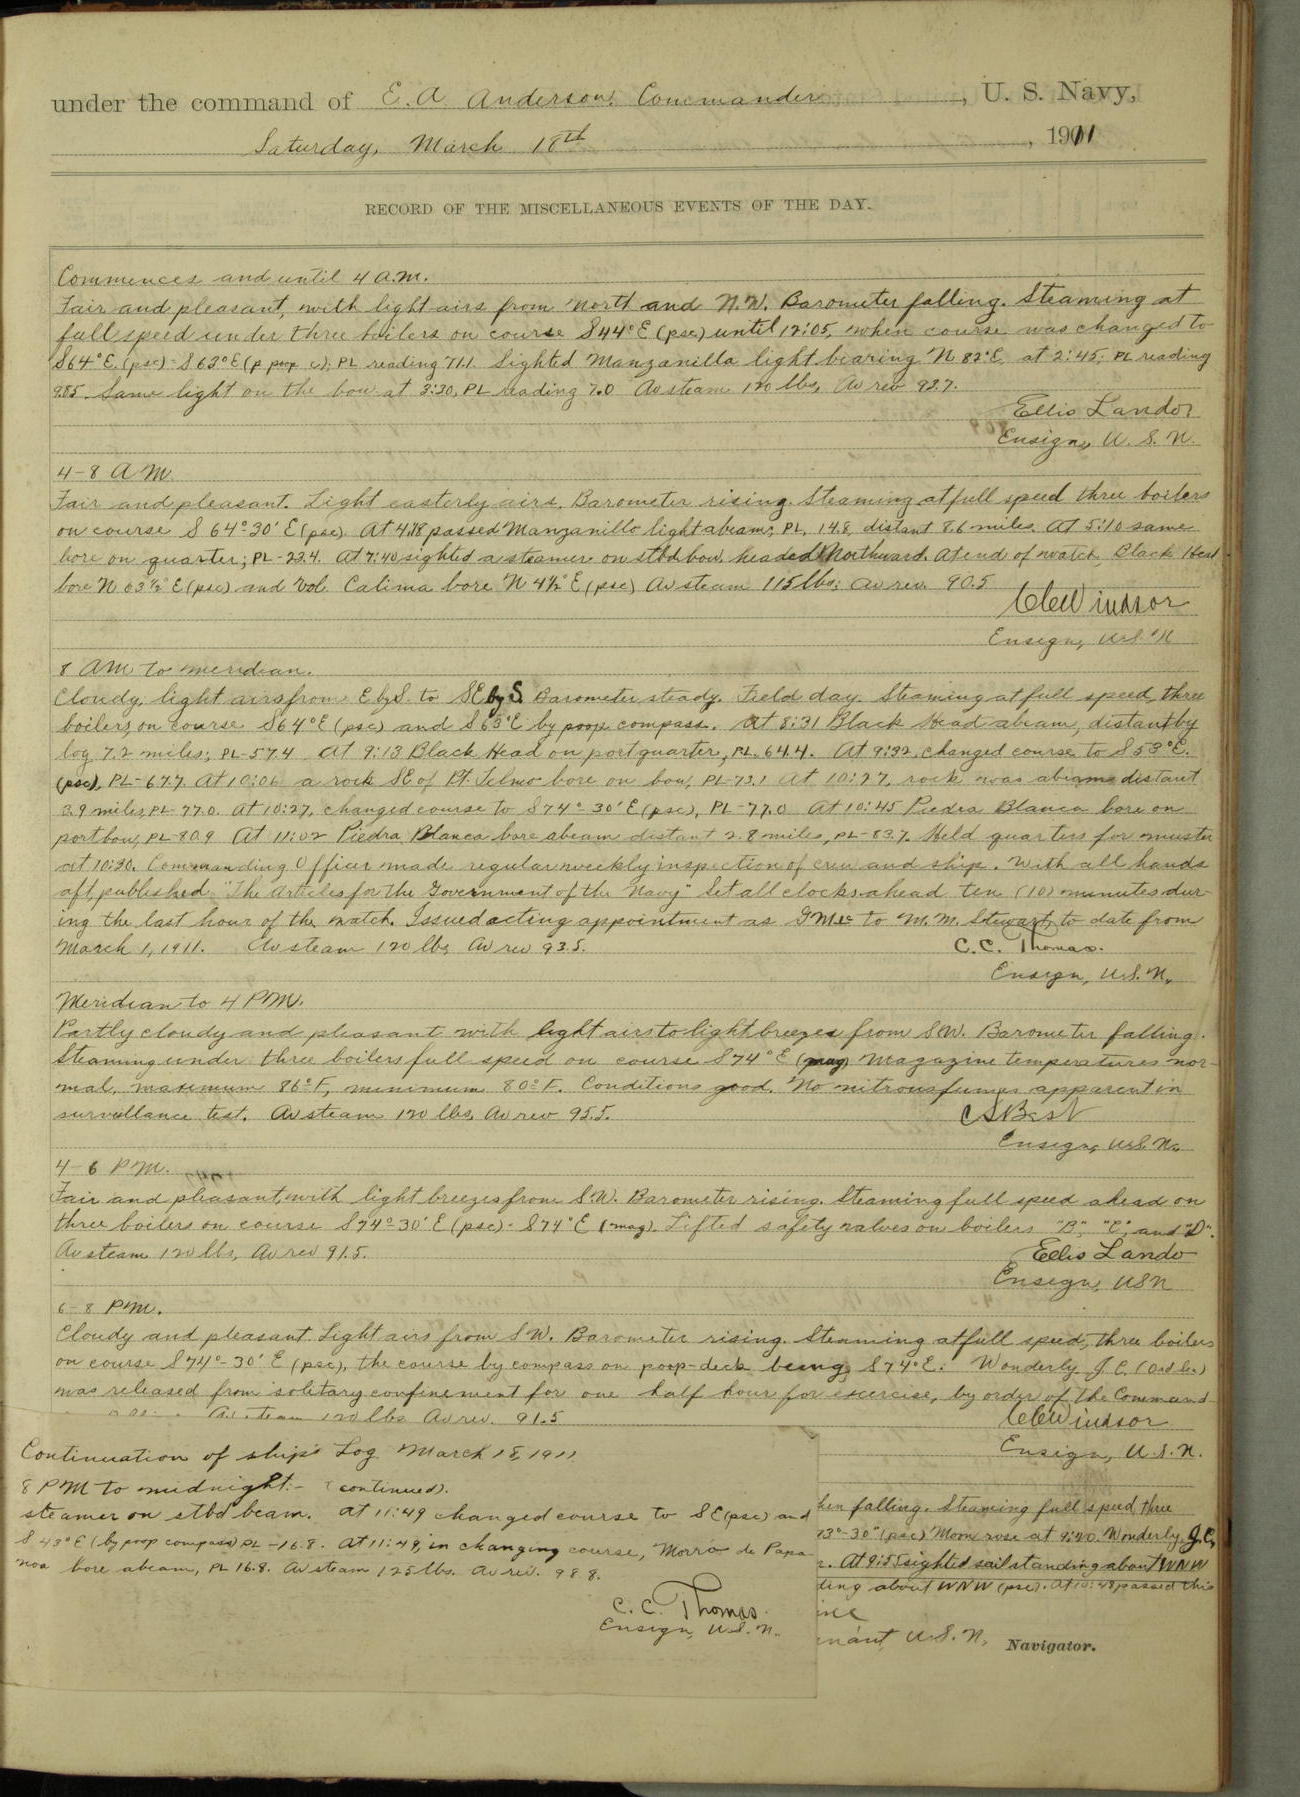 under the command of E. A. Anderson, Commander, U. S. Navy,
Saturday, March 18th, 1911
RECORD OF THE MISCELLANEOUS EVENTS OF THE DAY.
Commences and until 4 a.m.
Fair and pleasant, with light airs from North and N.W. Barometer falling. Steaming at
full speed under three boilers on course S44°E (psc) until 12:05, when course was changed to
S64°E (psc)-S63°E (p poop c); PL reading 71.1. Sighted Manzanilla light bearing N 82°E at 2:45; PL reading
98.5. Same light on the bow at 3:30, PL reading 7.0 Av steam 120 lbs, Av rev 92.7.
Ellis Lando
Ensign, U. S. N.
4-8 A M.
Fair and pleasant. Light easterly airs. Barometer rising. Steaming at full speed three boilers
on course S 64°-30' E (psc). At 4:18 passed Manzanillo light abeam, PL, 14.8, distant 8.6 miles. At 5:10 same
bore on quarter; PL-23.4. At 7:40 sighted a steamer on stbd bow, headed Northward. At end of watch, Black Head
bore N 63½°E (psc) and Vol. Calima bore N 4½°E (psc) Av steam 115 lbs; av rev. 90.5
Windsor
Ensign, U.S.N
8 AM to meridian.
Cloudy, light airs from E by S. to SE by S. Barometer steady. Field day. Steaming at full speed, three
boilers, on course S64°E (psc) and S63°E by poop compass. At 8:31 Black Head abeam, distant by
log 7.2 miles; PL-57.4 At 9:13 Black Head on port quarter, PL. 64.4. At 9:32, changed course to S 53°E.
(psc), PL-67.7. At 10:06 a rock SE of Pt. Telmo bore on bow, PL-73.1 At 10:27, rock was abeam distant
3.9 miles, PL-77.0. At 10:27, changed course to S74°-30' E (psc), PL-77.0 At 10:45 Piedra Blanca bore on
port bow, PL-80.9 At 11:02 Piedra Blanca bore abeam distant 2.8 miles, PL-83.7. Held quarters for muster
at 10:30. Commanding Officer made regular weekly inspection of crew and ship. With all hands
aft, published "The Articles for the Government of the Navy" Set all clocks ahead ten (10) minutes dur-
ing the last hour of the watch. Issued acting appointment as GM1c to M. M. Stewart, to date from
March 1, 1911. Av steam 120 lbs, Av rev 93.5.
C.C. Thomas.
Ensign, U.S.N.
Meridian to 4 P.M.
Partly cloudy and pleasant with light airs to light breezes from S.W. Barometer falling.
Steaming under three boilers full speed on course S74°E (mag) Magazine temperatures nor-
mal, maximum 86°F, minimum 80°F. Conditions good. No nitrous fumes apparent in
surveillance test. Av steam 120 lbs, Av rev 95.5.
C S Best
Ensign, U.S.N.
4-6 P.M.
Fair and pleasant, with light breezes from S.W. Barometer rising. Steaming full speed ahead on
three boilers on course S74°-30' E (psc)-S74°E (mag). Lifted safety valves on boilers "B", "C", and "D".
Av steam 120 lbs, Av rev 91.5.
Ellis Lando
Ensign, USN
6-8 P.M.
Cloudy and pleasant. Light airs from S.W. Barometer rising. Steaming at full speed, three boilers
on course S74°-30' E (psc), the course by compass on poop-deck being S74°E. Wonderly J. C. (Ord Sea)
was released from solitary confinement for one half hour for exercise, by order of the Command-
Av. steam 120 lbs Av rev. 91.5
Windsor
Ensign, U.S.N.
Continuation of ship's Log March 18, 1911
8 PM to midnight:- (continued).
steamer on stbd beam. At 11:49 changed course to SE (psc) and
S 43°E (by poop compass) PL-16.8. At 11:49, in changing course, Morro de Papa-
noa bore abeam, PL 16.8. Av steam 125 lbs. Av rev. 98.8.
C. C. Thomas.
Ensign, U.S.N.
hen falling. Steaming full speed three
73°-30" (psc) Moon rose at 9:20. Wonderly, J.C,
. At 9:55 sighted sail standing about WNW
ding about WNW (psc). At 10:48 passed this
nant, U.S.N, Navigator.